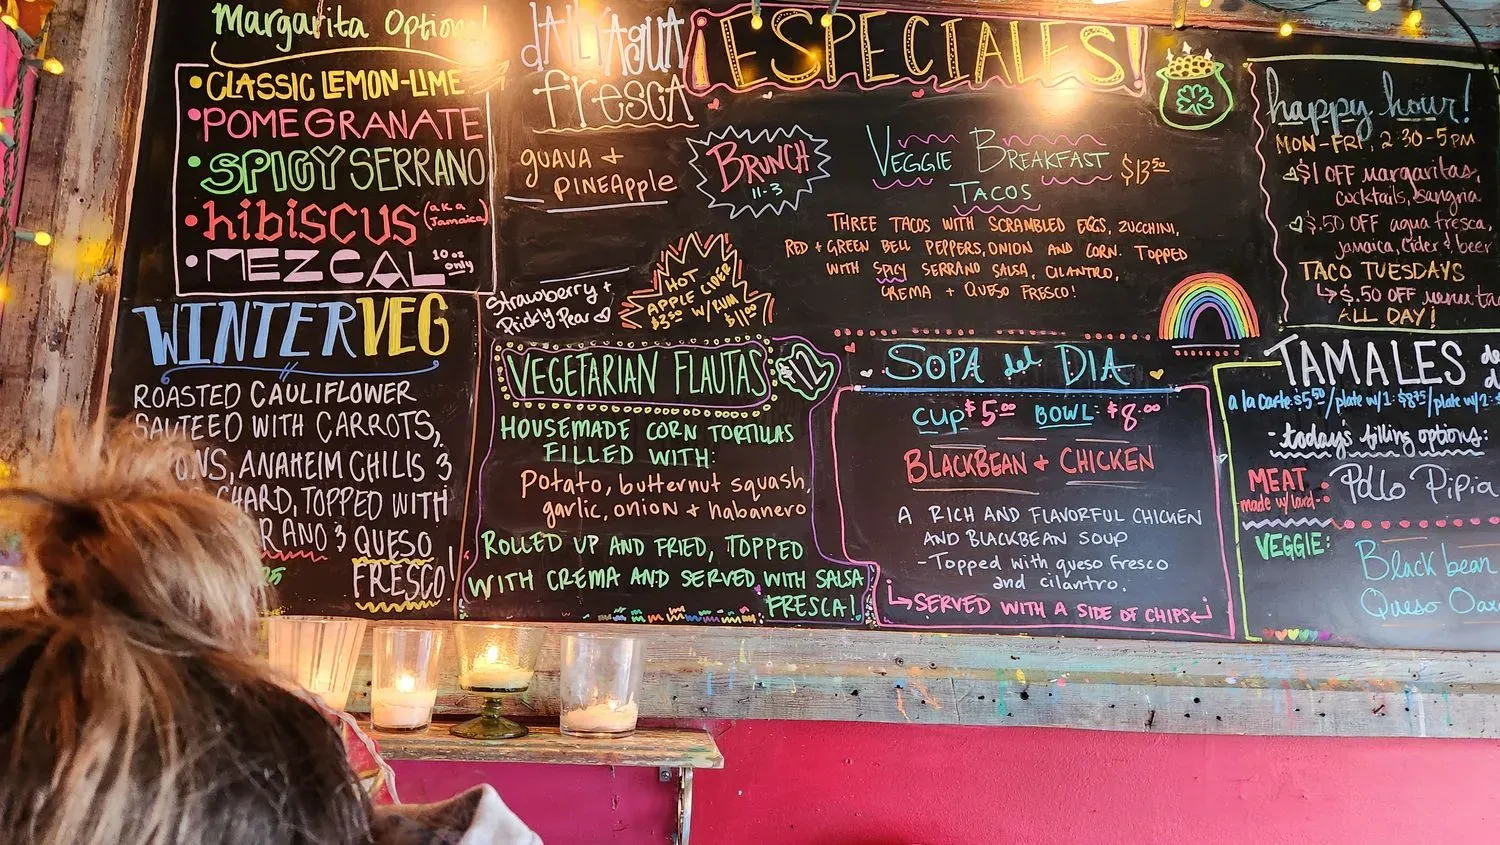 Margarita Options
• CLASSIC LEMON-LIME
• POMEGRANATE
• SPICY SERRANO
• hibiscus (a.k.a Jamaica)
• MEZCAL 10 oz only
WINTER VEG
ROASTED CAULIFLOWER
SAUTEED WITH CARROTS,
ONS, ANAHEIM CHILIS &
CHARD, TOPPED WITH
RANO & QUESO
FRESCO!
dAILY AGUA
fresca
guava +
PINEApple
Strawberry +
Prickly Pear
BRUNCH
11-3
HOT
APPLE CIDER
$3.50 W/RUM
$11.00
¡ESPECIALES!
VEGGIE BREAKFAST
TACOS
$13.50
THREE TACOS WITH SCRAMBLED EGGS, ZUCCHINI,
RED + GREEN BELL PEPPERS, ONION AND CORN. TOPPED
WITH SPICY SERRANO SALSA, CILANTRO,
CREMA + QUESO FRESCO!
VEGETARIAN FLAUTAS
12
HOUSEMADE CORN TORTILLAS
FILLED WITH:
Potato, butternut squash,
garlic, onion + habanero
ROLLED UP AND FRIED, TOPPED
WITH CREMA AND SERVED WITH SALSA
FRESCA!
SOPA del DIA
CUP $5.00 BOWL: $8.00
BLACKBEAN + CHICKEN
A RICH AND FLAVORFUL CHICKEN
AND BLACKBEAN SOUP
- Topped with queso fresco
and cilantro.
SERVED WITH A SIDE OF CHIPS
happy hour!
MON-FRI, 2:30-5PM
$1 OFF margaritas,
cocktails, sangria
$.50 OFF agua fresca,
jamaica, cider & beer
TACO TUESDAYS
$.50 OFF menu
ALL DAY!
TAMALES
a la carte: $5.50/plate w/1: $8.95/plate w/2:
- today's filling options:
MEAT
made w/ lard-:
Pollo Pipia
VEGGIE:
Black bean
Queso